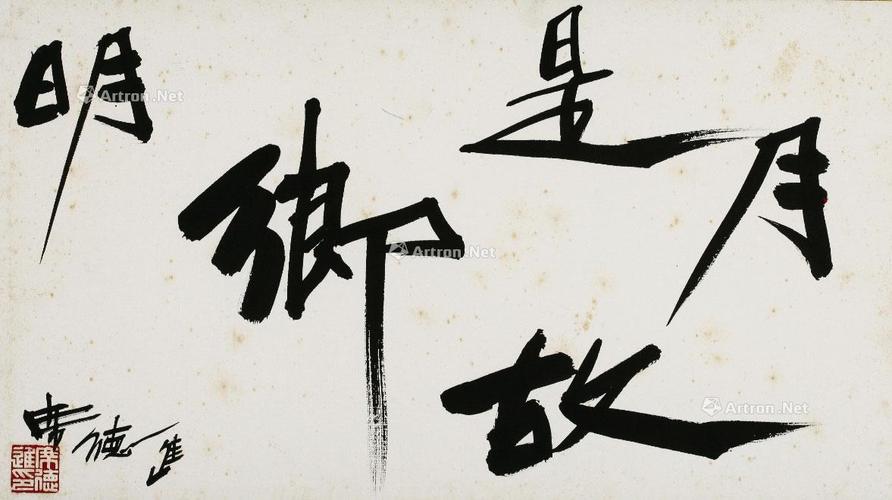 月是故鄉明
席德進
席德進印
Artron.Net
Artron.Net
Artron.Net